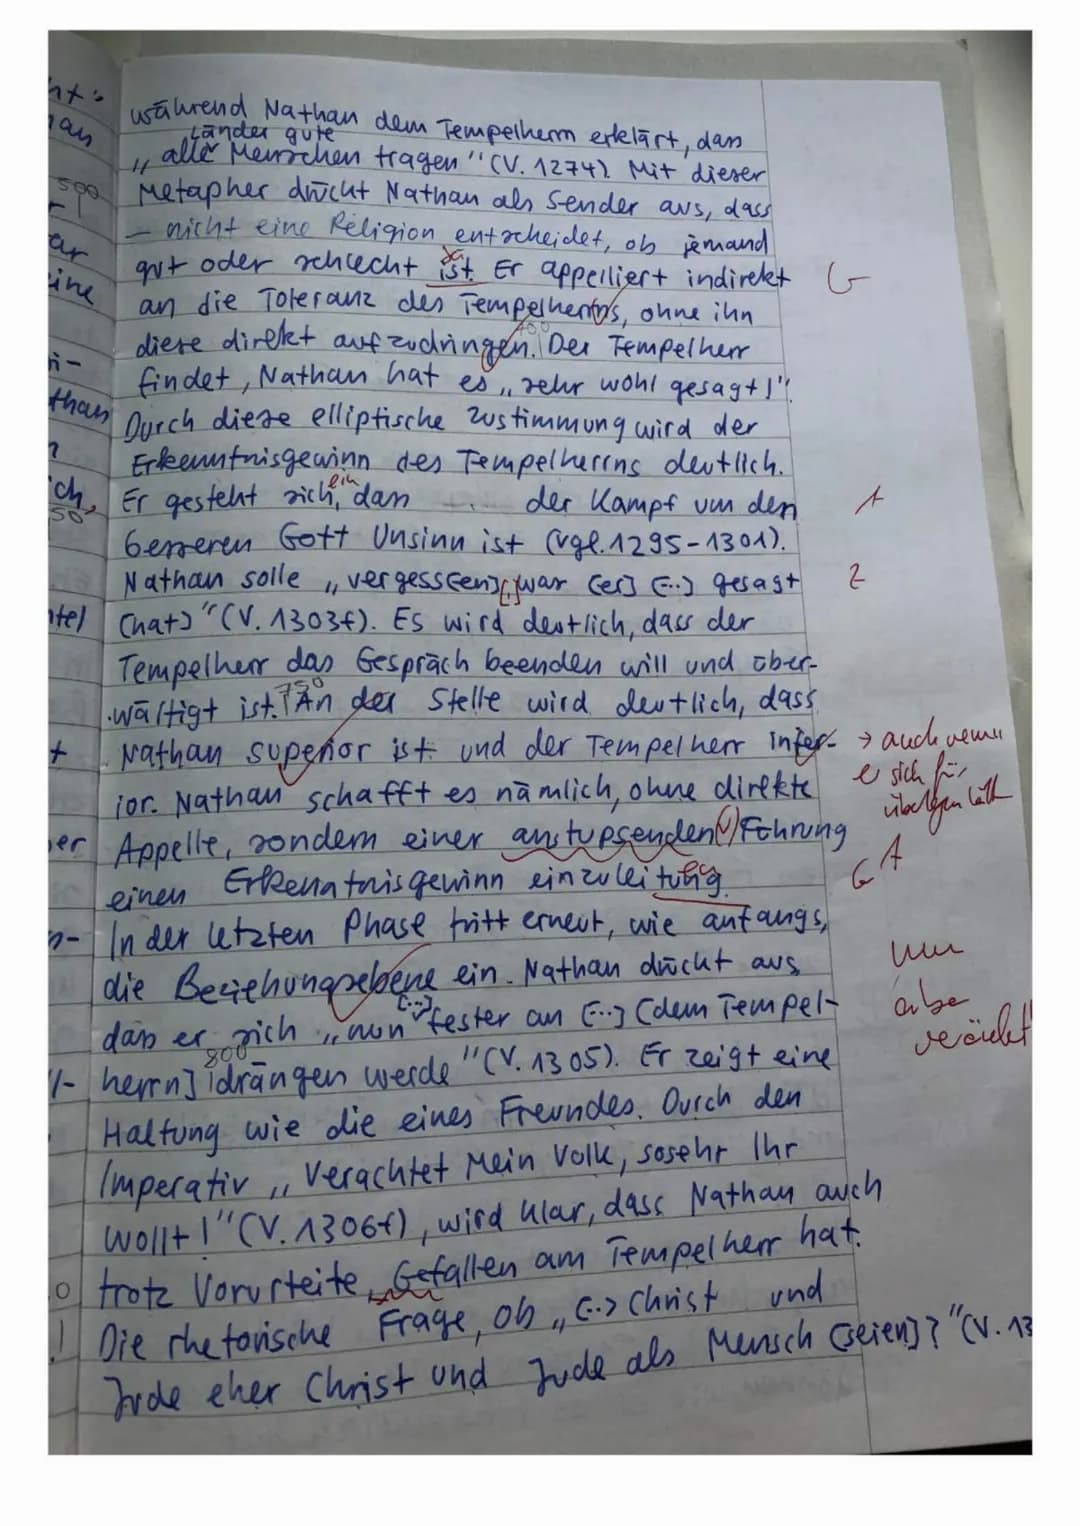 während Nathan dem Tempelherrn erklärt, dass
Länder gute
„alle Menschen tragen" (V. 1274). Mit dieser
Metapher drückt Nathan als Sender aus, dass
– nicht eine Religion entscheidet, ob jemand
gut oder schlecht ist. Er appelliert indirekt G
an die Toleranz des Tempelherrns, ohne ihn
diese direkt aufzudringen. Der Tempelherr
findet, Nathan hat es „sehr wohl gesagt!".
Durch diese elliptische Zustimmung wird der
Erkenntnisgewinn des Tempelherrns deutlich.
Er gesteht sich ein, dass der Kampf um den A
besseren Gott Unsinn ist (vgl. 1295-1301).
Nathan solle „vergess[en][,] was [er] [...] gesagt Z
[hat]" (V. 1303f). Es wird deutlich, dass der
Tempelherr das Gespräch beenden will und über-
wältigt ist. 750 An der Stelle wird deutlich, dass
Nathan superior ist und der Tempelherr infer- → auch wenn
er sich für
ior. Nathan schafft es nämlich, ohne direkte
überlegen hält
Appelle, sondern einer anstupsenden (√) Führung
einen Erkenntnisgewinn einzuleitung. G A
In der letzten Phase tritt erneut, wie anfangs,
die Beziehungsebene ein. Nathan drückt aus,
dass er sich „nun [...] fester an [...] [dem Tempel-
herrn] 800 drängen werde" (V. 1305). Er zeigt eine
Haltung wie die eines Freundes. Durch den
Imperativ „Verachtet Mein Volk, sosehr Ihr
wollt!" (V. 1306f), wird klar, dass Nathan auch
trotz Vorurteile, Gefallen am Tempelherr hat.
Die rhetorische Frage, ob „[...] Christ und
Jude eher Christ und Jude als Mensch [seien]?" (V. 13